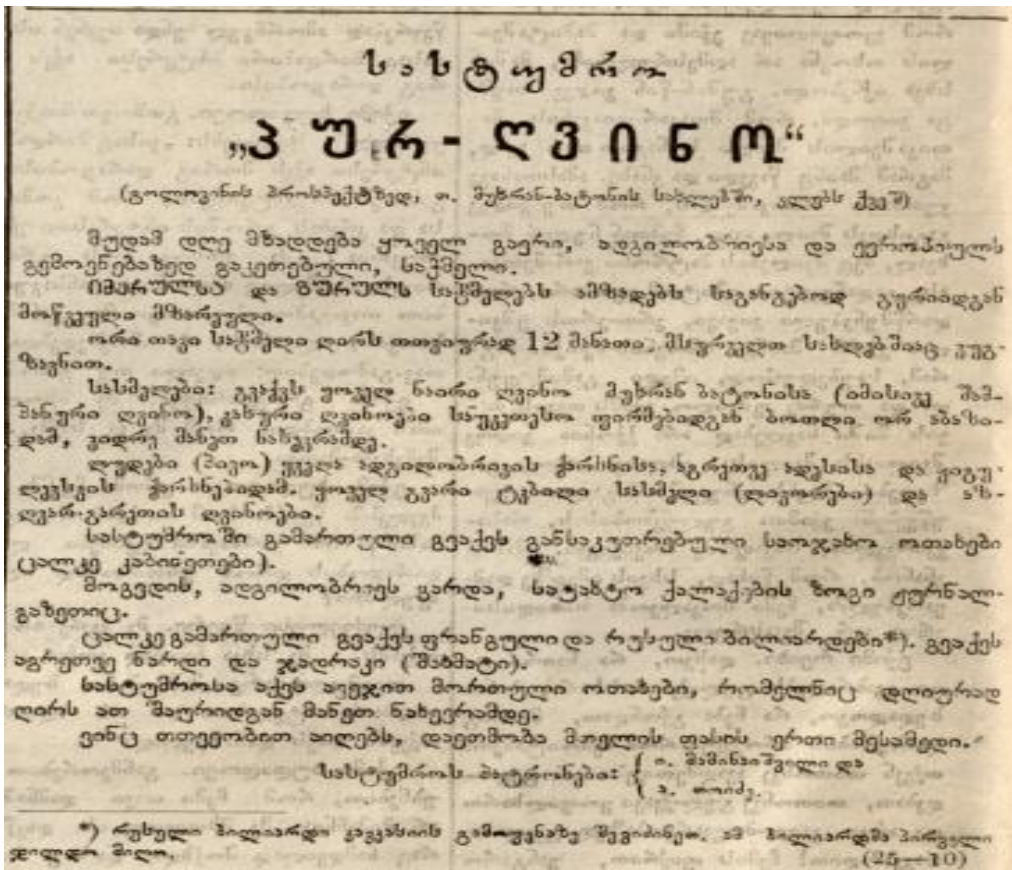 სასტუმრო
„პურ-ღვინო“
(გოლოვინის პროსპექტზედ, თ. მუხრან-ბატონის სახლებში, კლუბს ქვეშ)
მუდამ დღე მზადდება ყოველ გვერი, ადგილობრივსა და ევროპიულს
გემოვნებაზედ გაკეთებული, საჭმელი.
იმერულსა და გურულს საჭმელებს ამზადებს საგანგებოდ გურიიდგან
მოწვეული მზარეული.
ორი თავი საჭმელი ღირს თთვიურად 12 მანათი, მსურველთ სახლებშიაც ვუგ-
ზავნით.
სასმელები: გვაქვს ყოველ ნაირი ღვინო მუხრან ბატონისა (იმისივე შამ-
პანური ღვინო), კახური ღვინოები საუკეთესო ფირმებიდგან ბოთლი ორ აბაზი-
დამ, ვიდრე მანეთ ნახევრამდე.
ლუდები (პივო) ყველა ადგილობრივის ქარხნისა, აგრეთვე ადესისა და ჟიგუ-
ლევსკის ქარხნებიდამ. ყოველ გვარი ტკბილი სასმელი (ლიკორები) და აზ-
ღვარ-გარეთის ღვინოები.
სასტუმროში გამართული გვაქვს განსაკუთრებული საოჯახო ოთახები
(ცალკე კაბინეთები).
მოგვდის, ადგილობრივს გარდა, სატახტო ქალაქების ზოგი ჟურნალ-
გაზეთიც.
ცალკე გამართული გვაქვს ფრანგული და რუსული ბილიარდები*). გვაქვს
აგრეთვე ნარდი და ჯადრაკი (შახმატი).
სასტუმროსა აქვს ავეჯით მორთული ოთახები, რომელნიც დღიურად
ღირს ათ შაურიდგან მანეთ ნახევრამდე.
ვინც თთვეობით აიღებს, დაეთმობა მთელის ფასის ერთი მესამედი.
სასტუმროს პატრონები: { ი. მამინაიშვილი და
{ ა. თოიძე.
*) რუსული ბილიარდი კავკასიის გამოფენაზე შევიძინეთ. ამ ბილიარდმა პირველი
ჯილდო მიღო.
(25—10)